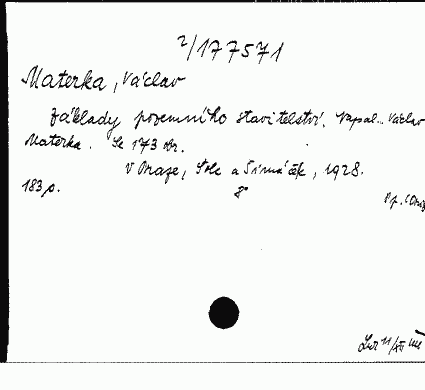 2/177571
Materka, Václav
Základy pozemního stavitelství. Napsal.. Václav
Materka. Se 173 obr.
V Praze, Šolc a Šimáček, 1928.
183 p. 8°